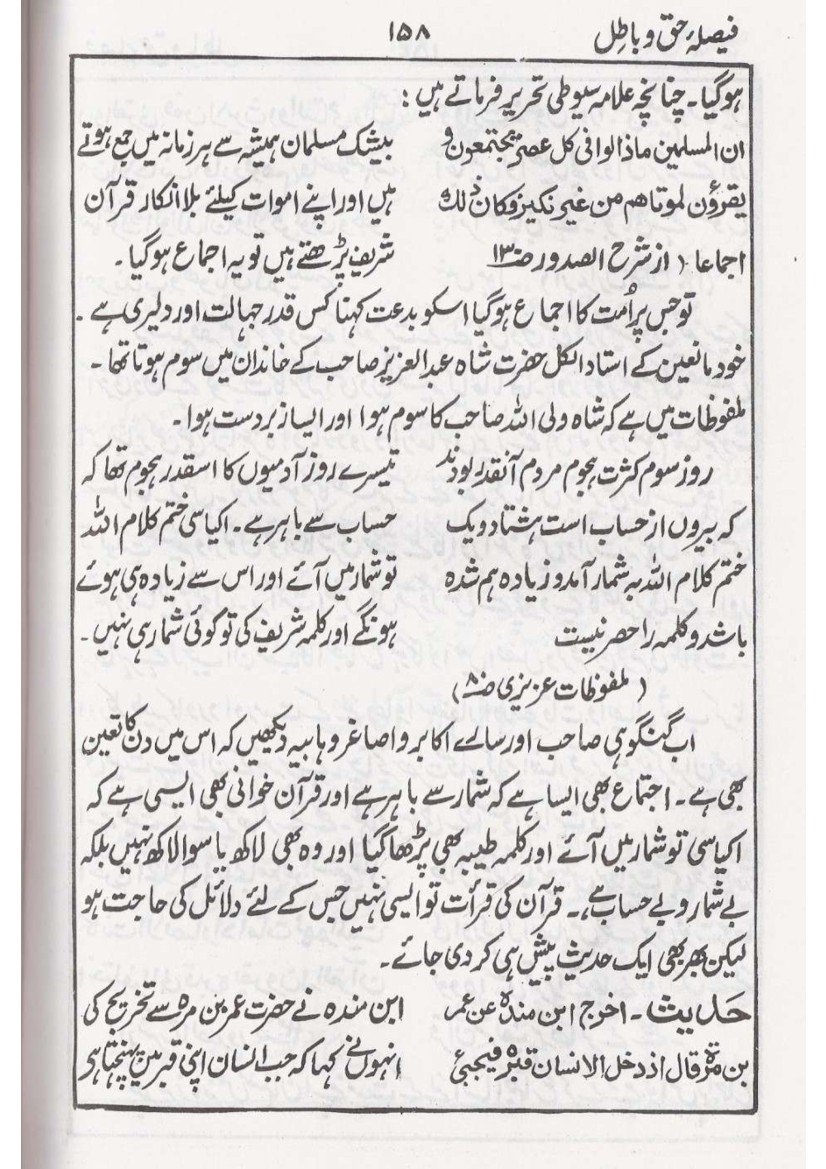 فیصلۂ حق و باطل ۱۵۸
ہوگیا۔ چنانچہ علامہ سیوطی تحریر فرماتے ہیں :
ان المسلمین ماذالوا فی کل عصر یجتمعون و بیشک مسلمان ہمیشہ سے ہر زمانہ میں جمع ہوتے
یقرؤن لموتاھم من غیر نکیر وکان ذلك ہیں اور اپنے اموات کیلئے بلا انکار قرآن
اجماعا (از شرح الصدور ص۱۳۰ شریف پڑھتے ہیں تو یہ اجماع ہوگیا۔
تو جس پر اُمت کا اجماع ہوگیا اسکو بدعت کہنا کس قدر جہالت اور دلیری ہے۔
خود مانعین کے استاد الکل حضرت شاہ عبدالعزیز صاحب کے خاندان میں سوم ہوتا تھا۔
ملفوظات میں ہے کہ شاہ ولی اللہ صاحب کا سوم ہوا اور ایسا زبردست ہوا۔
روز سوم کثرت ہجوم مردم آنقدر بودند تیسرے روز آدمیوں کا اسقدر ہجوم تھا کہ
کہ بیروں از حساب است ہشتاد ویک حساب سے باہر ہے۔ اکیاسی ختم کلام اللہ
ختم کلام اللہ بہ شمار آمد و زیادہ ہم شدہ تو شمار میں آئے اور اس سے زیادہ ہی ہوئے
باشد و کلمہ را حصر نیست ہونگے اور کلمہ شریف کی تو کوئی شمار ہی نہیں۔
(ملفوظات عزیزی ص۸۰)
اب گنگوہی صاحب اور سارے اکابر و اصاغر وہابیہ دیکھیں کہ اس میں دن کا تعین
بھی ہے۔ اجتماع بھی ایسا ہے کہ شمار سے باہر ہے اور قرآن خوانی بھی ایسی ہے کہ
اکیاسی تو شمار میں آئے اور کلمہ طیبہ بھی پڑھا گیا اور وہ بھی لاکھ یا سوا لاکھ نہیں بلکہ
بے شمار و بے حساب ہے۔ قرآن کی قرأت تو ایسی نہیں جس کے لئے دلائل کی حاجت ہو
لیکن پھر بھی ایک حدیث پیش ہی کر دی جائے۔
حدیث۔ اخرج ابن مندہ عن عمر ابن مندہ نے حضرت عمر بن مرہ سے تخریج کی
بن مرّة قال اذ دخل الانسان قبرہ فیجیئ انہوں نے کہا کہ جب انسان اپنی قبر میں پہنچتا ہے